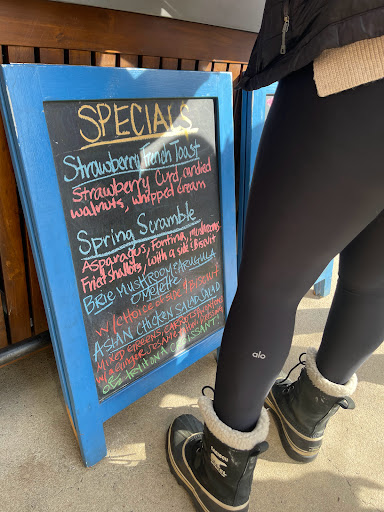 SPECIALS
Strawberry French Toast
Strawberry Curd, candied
walnuts, whipped cream
Spring Scramble
Asparagus, Fontina, mushrooms
Fried shallots, with a side & Biscuit
BRIE MUSHROOM & ARUGULA
OMELETTE
w/ choice of side & BISCUIT
ASIAN CHICKEN SALAD
MIXED GREENS,
W/ A GINGER
OR IT ON A CROISSANT!
alo
SOREL